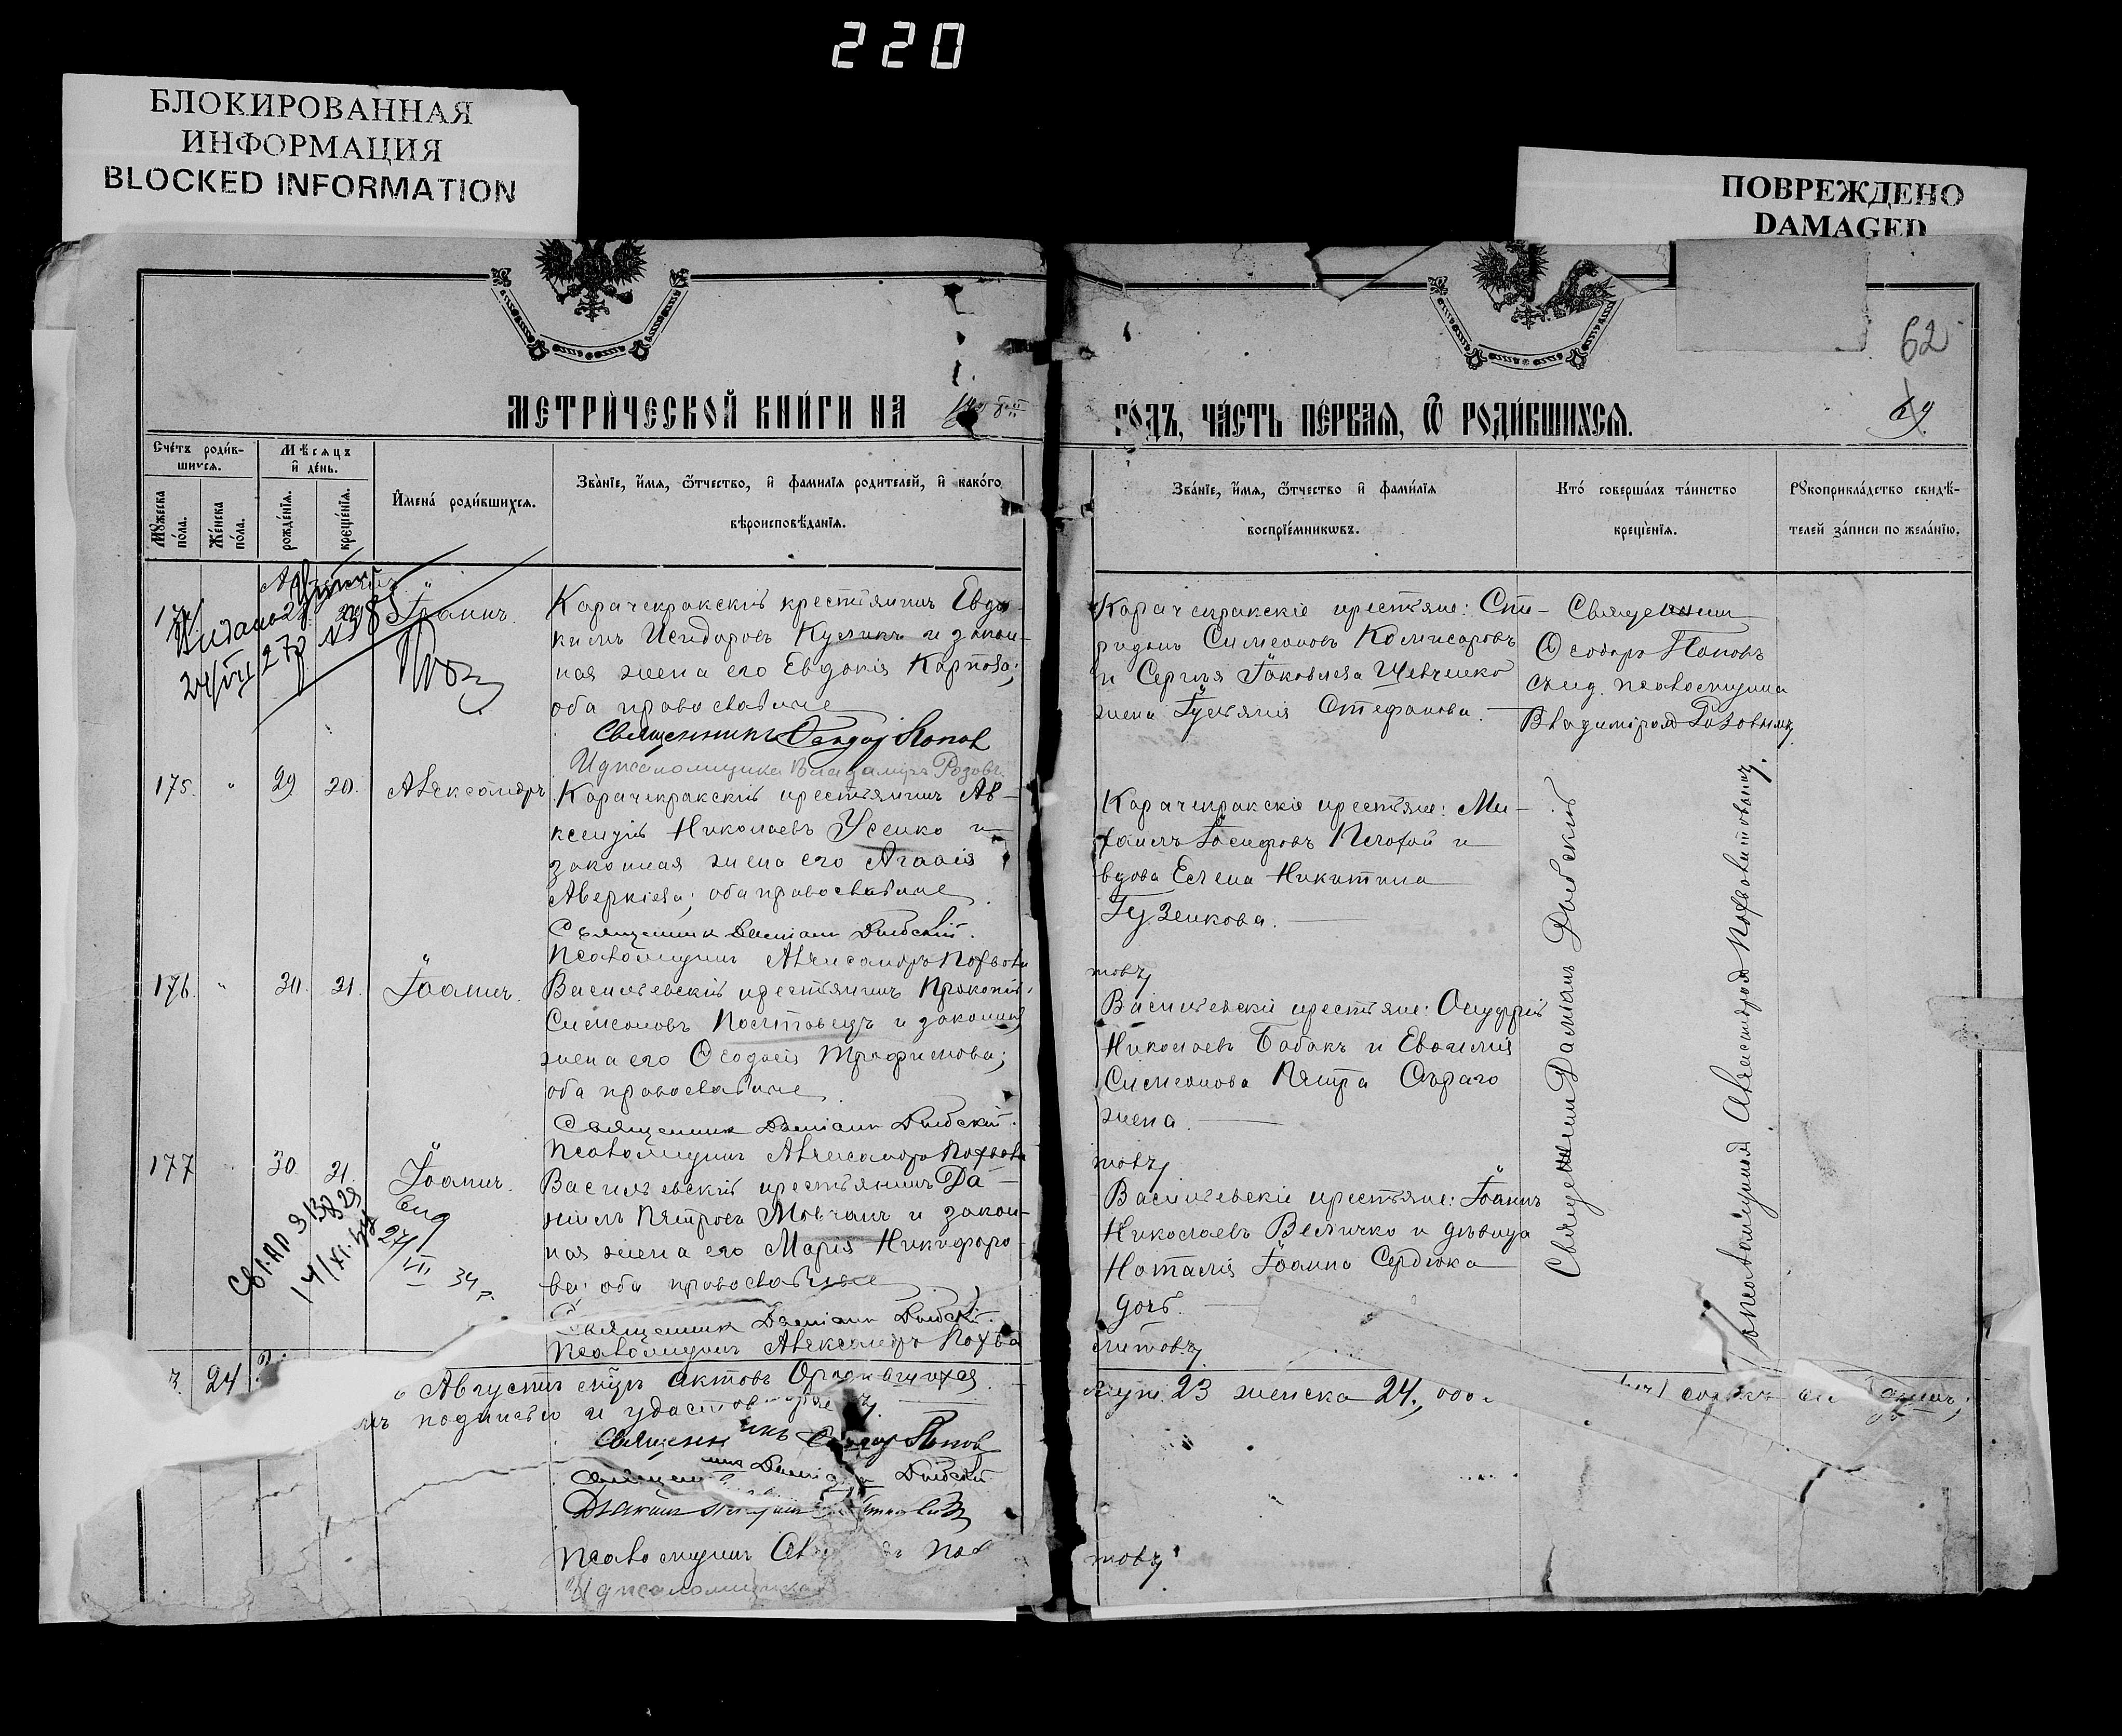 220
БЛОКИРОВАННАЯ
ИНФОРМАЦИЯ
BLOCKED INFORMATION
ПОВРЕЖДЕНО
DAMAGED
62
69
МЕТРИ́ЧЕСКОЙ КНИ́ГИ НА
ГО́ДЪ, ЧА́СТЬ ПЕ́РВАѦ, Ѿ РОДИ́ВШИХСѦ.
Сче́тъ роди́в-
шихсѧ.
Мѣсѧцъ
и҆ де́нь.
Мꙋжеска по́ла.
Же́нска по́ла.
рожде́нїѧ.
креще́нїѧ.
И҆мена̀ роди́вшихсѧ.
Зва́нїе, и҆́мѧ, ѻ҆́тчество, и҆ фами́лїѧ родителей, и҆ како́го
вѣроисповѣ́данїѧ.
Зва́нїе, и҆́мѧ, ѻ҆́тчество и҆ фами́лїѧ
воспрїе́мникѡвъ.
Кто̀ соверша́лъ та́инство
креще́нїѧ.
Рꙋкоприкла́дство свидѣ́-
телей за́писи по жела́нїю.
Іоаннъ.
Карачекракскій крестьянинъ Евдо-
кимъ Исидоровъ Куликъ и закон-
ная жена его Евдокія Карпова;
оба православные
Священникъ Ѳеодоръ Поповъ
И д псаломщика Владиміръ Розовъ
Карачекракскіе крестьяне: Спи-
ридонъ Симеоновъ Комисаровъ
и Сергѣя Іаковлева Шевченко
жена Іуліанія Стефанова.
Священникъ
Ѳеодоръ Поповъ
съ и д. псаломщика
Владиміромъ Розовымъ
175. " 29 30. Александръ
Карачекракскій крестьянинъ Ав-
ксентій Николаевъ Усенко и
законная жена его Агаѳія
Аверкіева; оба православные
Священникъ Даміанъ Дыбскій.
Псаломщикъ Александръ Похвали
товъ
Карачекракскіе крестьяне: Ми-
хаилъ Іосифовъ Плохой и
вдова Елена Никитина
Гузенкова.
176. " 30. 31. Іоаннъ.
Васильевскій крестьянинъ Прокопій
Симеоновъ Полтавецъ и законная
жена его Ѳеодосія Трофимова;
оба православные.
Священникъ Даміанъ Дыбскій.
Псаломщикъ Александръ Похвали
товъ
Васильевскіе крестьяне: Онуфрій
Николаевъ Бабакъ и Евфимія
Симеонова Петра Сѣраго
жена.
177 " 30. 31. Іоаннъ.
Васильевскій крестьянинъ Да-
ніилъ Петровъ Мовчанъ и закон-
ная жена его Марія Никифоро-
ва; оба православные
Священникъ Даміанъ Дыбскій.
Псаломщикъ Александръ Похва
литовъ
Васильевскіе крестьяне: Іоаннъ
Николаевъ Величко и дѣвица
Наталія Іоанна Сердюка
дочь.
Священникъ Даміанъ Дыбскій
съ псаломщикомъ Александромъ Похвалитовымъ.
27/VII 34 г.
24
Августѣ мцѣ актовъ О родившихся
муж. 23 женска 24,
подписью и удостовѣряемъ.
Священникъ Ѳеодоръ Поповъ
Священникъ Даміанъ Дыбскій
Псаломщикъ
товъ
И д псаломщика